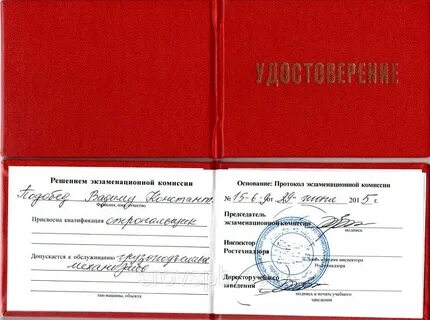 УДОСТОВЕРЕНИЕ
Решением экзаменационной комиссии
Подобед Вадимид Констант
фамилия, имя, отчество
Присвоена квалификация стропольщик
Допускается к обслуживанию грузоподъемных
механизмов
тип машины, объекта
Основание: Протокол экзаменационной комиссии
№ 15-6 от 29 июня 2015 г.
Председатель
экзаменационной комиссии
подпись
Инспектор
Ростехнадзора
Ростехнадзора
Директор учебного
заведения
подпись и печать учебного
заведения